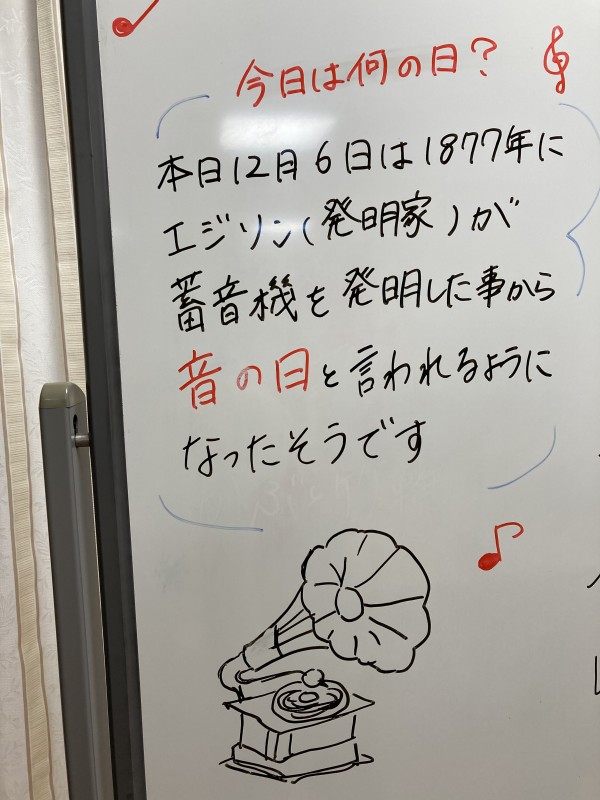 今日は何の日?
本日12月6日は1877年に
エジソン(発明家)が
蓄音機を発明した事から
音の日と言われるように
なったそうです